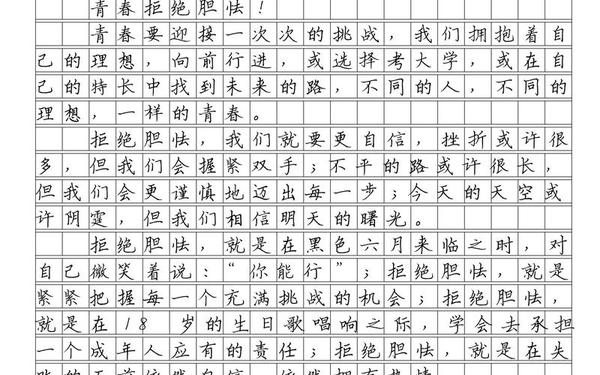 青春拒绝胆怯！
青春要迎接一次次的挑战，我们拥抱着自
己的理想，向前行进，或选择考大学，或在自
己的特长中找到未来的路，不同的人，不同的
理想，一样的青春。
拒绝胆怯，我们就要更自信，挫折或许很
多，但我们会握紧双手；不平的路或许很长，
但我们会更谨慎地迈出每一步；今天的天空或
许阴霾，但我们相信明天的曙光。
拒绝胆怯，就是在黑色六月来临之时，对
自己微笑着说：“你能行”；拒绝胆怯，就是
紧紧把握每一个充满挑战的机会；拒绝胆怯，
就是在18岁的生日歌唱响之际，学会去承担
一个成年人应有的责任；拒绝胆怯，就是在失